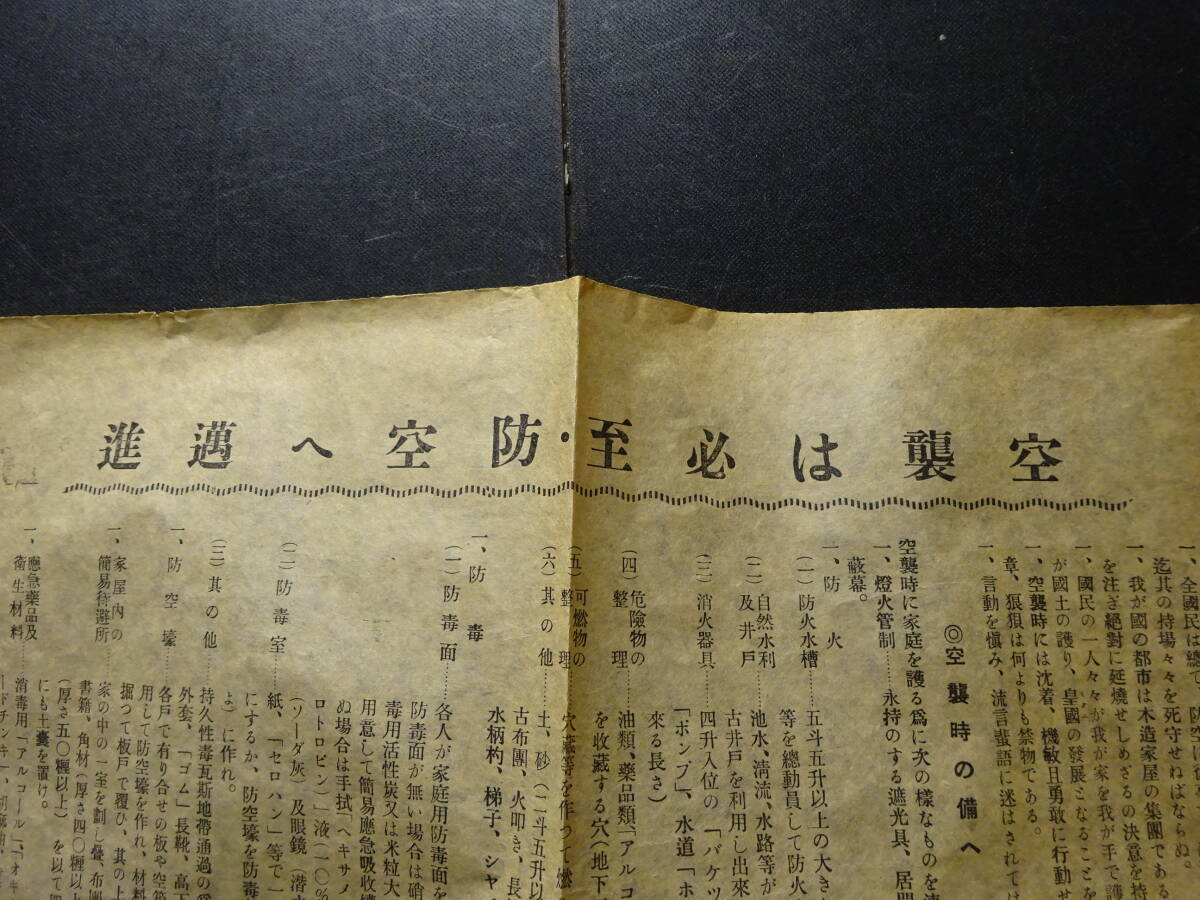 空襲は必至・防空へ邁進
一、全國民は總て
迄其の持場々々を死守せねばならぬ。
一、我が國の都市は木造家屋の集團である
を注ぎ絶對に延燒せしめざるの決意を持
一、國民の一人々々が我が家を我が手で護
が國土の護り、皇國の發展となることを
一、空襲時には沈着、機敏且勇敢に行動せ
章、狼狽は何よりも禁物である。
一、言動を愼み、流言蜚語に迷はされては
◎空襲時の備へ
空襲時に家庭を護る爲に次の樣なものを
一、燈火管制……永持のする遮光具、居間
蔽幕。
一、防火
(一)防火水槽……五斗五升以上の大き
等を總動員して防火
(二)自然水利及井戸……池水、淸流、水路等が
古井戸を利用し出來
(三)消火器具……四升入位の「バケツ
「ポンプ」、水道「ホ
來る長さ)
(四)危險物の整理……油類、藥品類「アルコ
を收藏する穴(地下
(五)可燃物の整理……穴藏等を作つて燃
(六)其の他……土、砂(一斗五升以
古布團、火叩き、長
水柄杓、梯子、シャ
一、防毒
(一)防毒面……各人が家庭用防毒面を
防毒面が無い場合は硝
毒用活性炭又は米粒大
用意して簡易應急吸收
ぬ場合は手拭「ヘキサメ
ロトロピン)」液(一〇%
(ソーダ灰)及眼鏡(潜水
(二)防毒室……紙、「セロハン」等で一
にするか、防空壕を防毒
よ)に作れ。
(三)其の他……持久性毒瓦斯地帶通過の爲
外套、「ゴム」長靴、高下
一、防空壕……各戸で有り合せの板や空箱
用して防空壕を作れ、材料
掘つて板戸で覆ひ、其の上
一、家屋内の簡易待避所……家の中の一室を劃し疊、布團
書籍、角材(厚さ四〇糎以上
(厚さ五〇糎以上)を以て四
にも土嚢を置け。
一、應急藥品及衞生材料……消毒用「アルコール」、「オキ
ードチンキ」